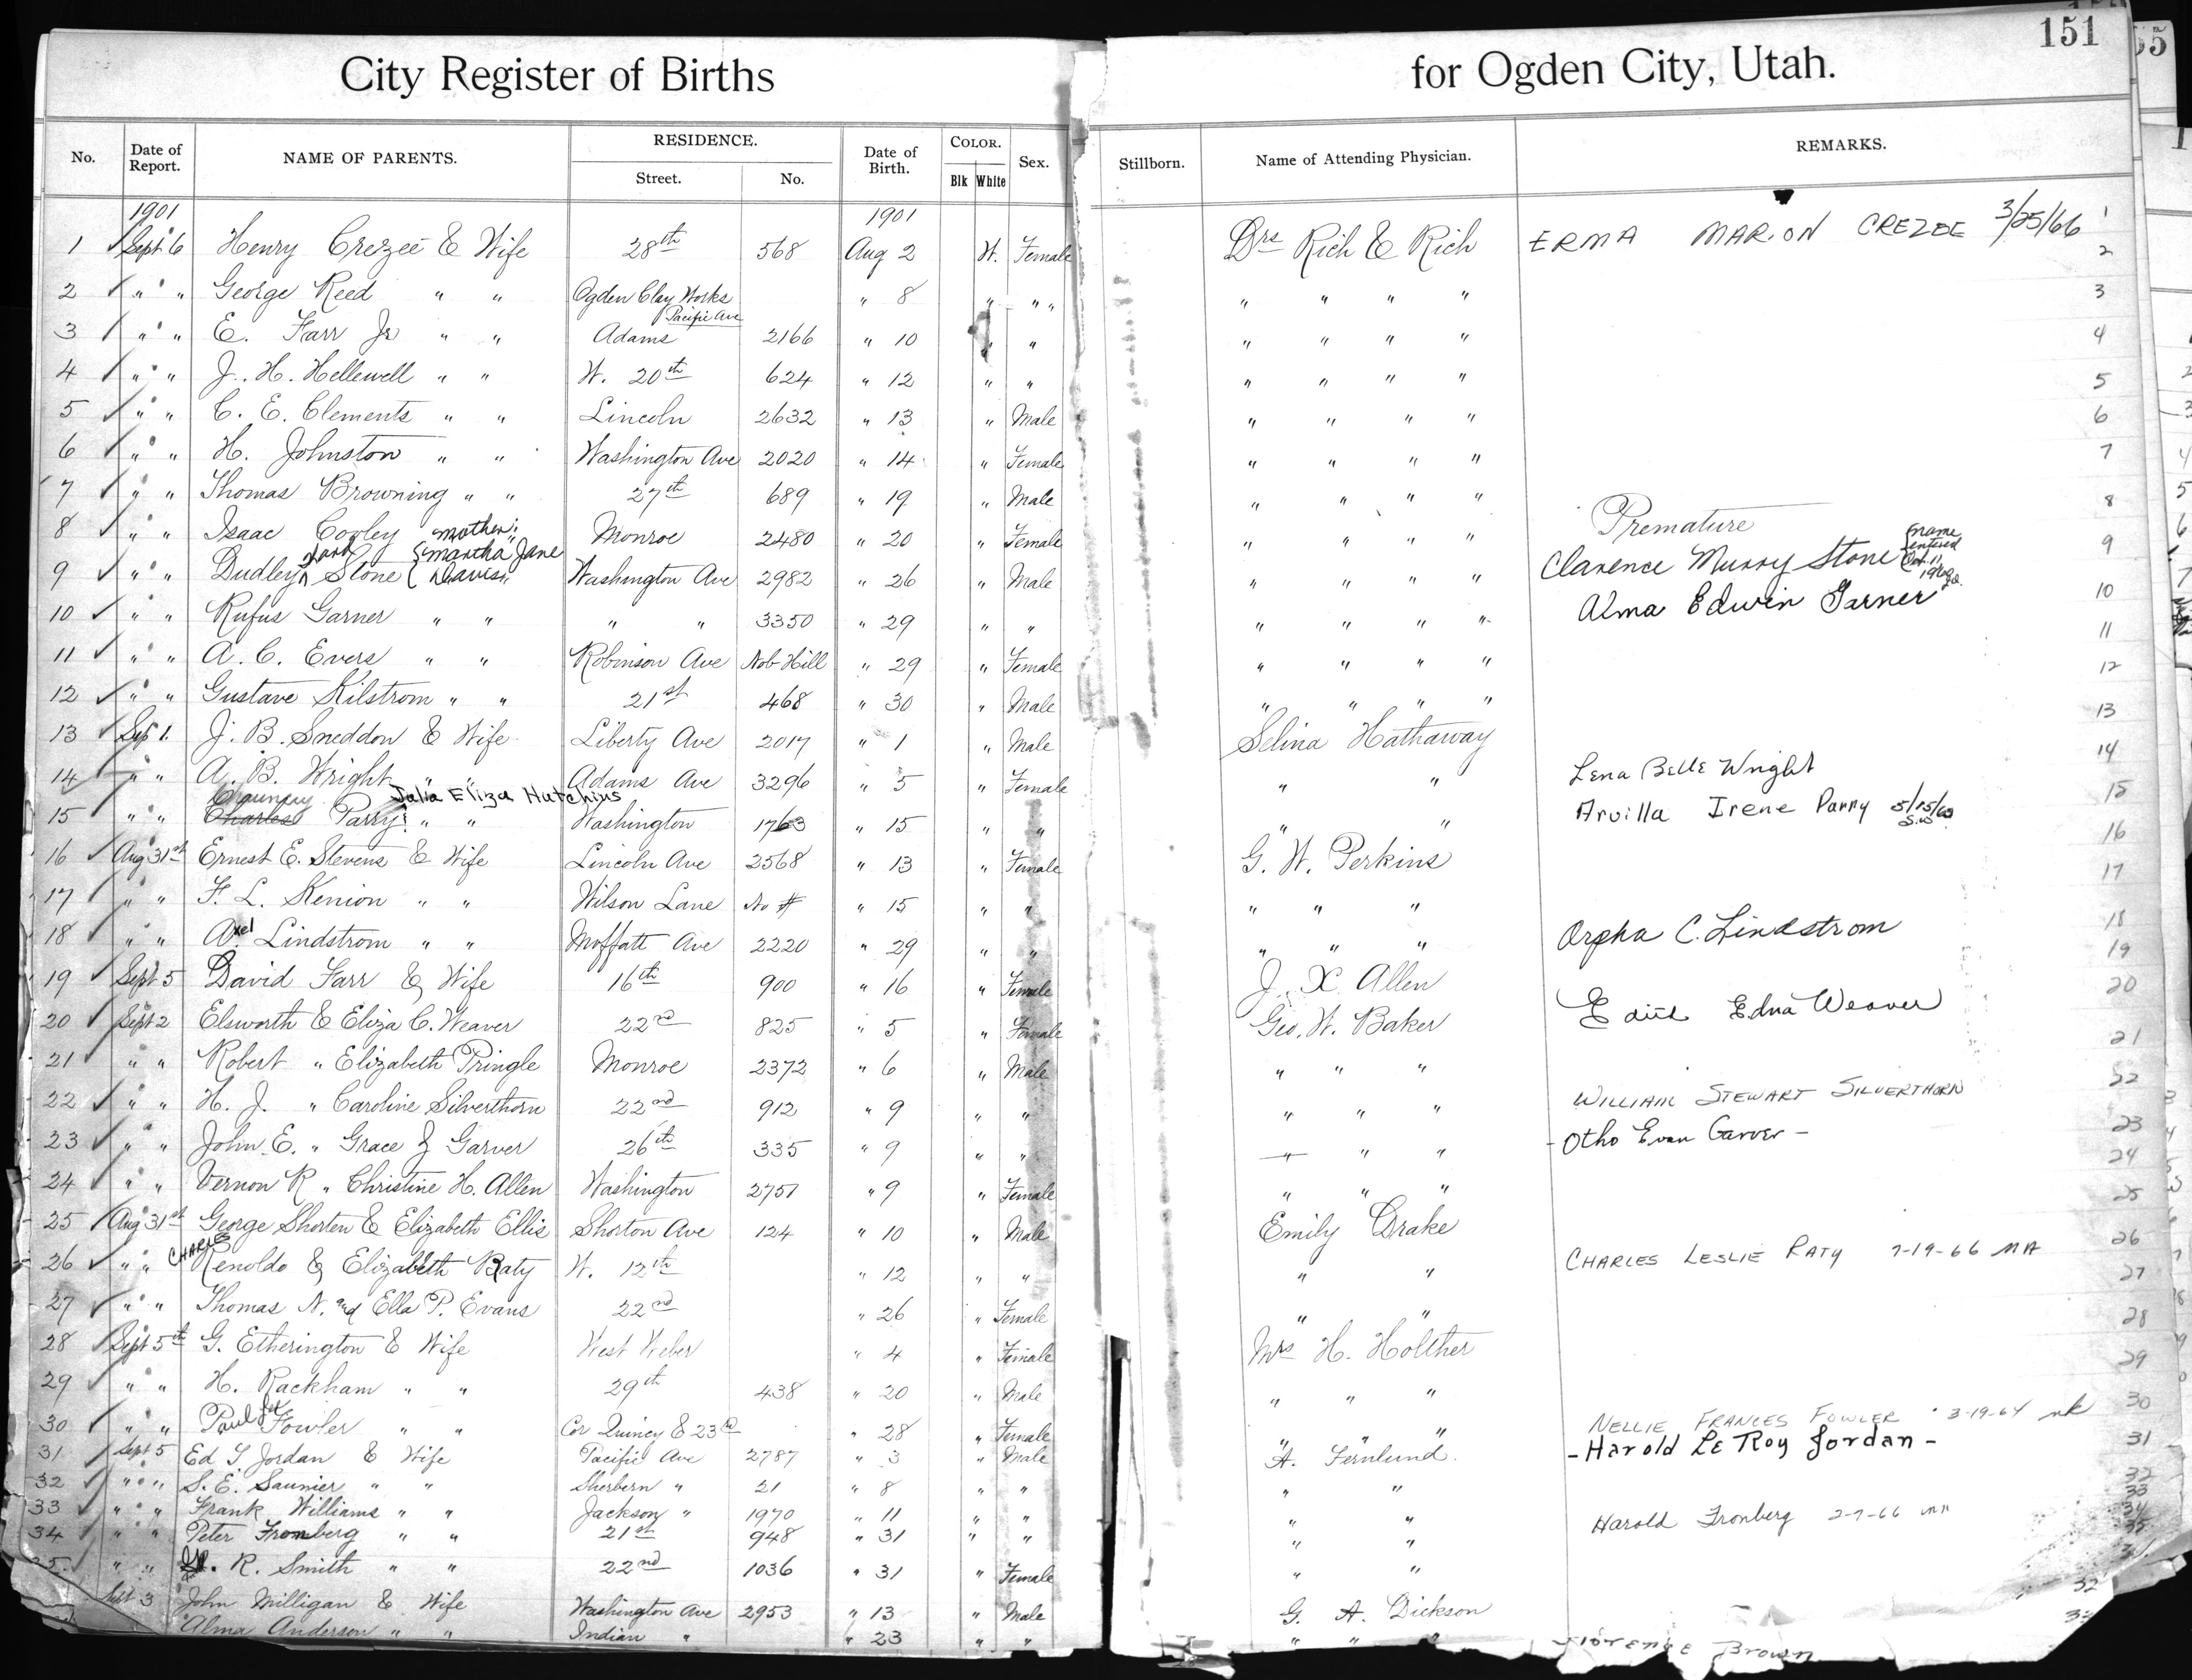 151
55
City Register of Births for Ogden City, Utah.
No. Date of Report. NAME OF PARENTS. RESIDENCE. Street. No. Date of Birth. COLOR. Blk White Sex. Stillborn. Name of Attending Physician. REMARKS.
1901 1901
1 Sept 6 Henry Crezee & Wife 28th 568 Aug 2 W. Female Drs Rich & Rich ERMA MARION CREZEE 3/25/66 1
2 " " George Reed " " Ogden Clay Works Pacific Ave " 8 " " " " " " 2
3 " " E. Farr Jr " " Adams 2166 " 10 " " " " " " 3
4 " " J. H. Hellewell " " W. 20th 624 " 12 " " " " " " 4
5 " " C. E. Clements " " Lincoln 2632 " 13 " Male " " " " 5
6 " " H. Johnston " " Washington Ave 2020 " 14 " Female " " " " 6
7 " " Thomas Browning " " 27th 689 " 19 " Male " " " " 7
8 " " Isaac Cooley Monroe 2480 " 20 " Female " " " " Premature 8
mother: Martha Jane Davis
9 " " Dudley Stone Washington Ave 2982 " 26 " Male " " " " Clarence Murry Stone name entered Oct. 11, 9
10 " " Rufus Garner " " " " 3350 " 29 " " " " " " Alma Edwin Garner 10
11 " " A. C. Evers " " Robinson Ave Nob Hill " 29 " Female " " " " 11
12 " " Gustave Kilstrom " " 21st 468 " 30 " Male " " " " 12
13 Sept 1. J. B. Sneddon & Wife Liberty Ave 2017 " 1 " Male Selina Hathaway 13
14 " " A. B. Wright " " Adams Ave 3296 " 5 " Female " " Lena Belle Wright 14
Chauncy Julia Eliza Hutchins
15 " " Charles Parry " " Washington 1763 " 15 " " " " Arvilla Irene Parry 5/15/62 S.W. 15
16 Aug 31st Ernest E. Stevens & Wife Lincoln Ave 2568 " 13 " Female G. W. Perkins 16
17 " " F. L. Kenion " " Wilson Lane No # " 15 " " " " " 17
18 " " Axel Lindstrom " " Moffatt Ave 2220 " 29 " " " " " Orpha C. Lindstrom 18
19 Sept 5 David Farr & Wife 16th 900 " 16 " Female J. X. Allen 19
20 Sept 2 Elsworth & Eliza C. Weaver 22d 825 " 5 " Female Geo. W. Baker Edith Edna Weaver 20
21 " " Robert " Elizabeth Pringle Monroe 2372 " 6 " Male " " " 21
22 " " H. J. " Caroline Silverthorn 22nd 912 " 9 " " " " " WILLIAM STEWART SILVERTHORN 22
23 " " John E. " Grace J Garver 26th 335 " 9 " " " " " - Otho Evan Garver - 23
24 " " Vernon R " Christine H. Allen Washington 2751 " 9 " Female " " " 24
25 Aug 31st George Shorten & Elizabeth Ellis Shorton Ave 124 " 10 " Male Emily Drake 25
CHARLES
26 " " Renoldo & Elizabeth Raty W. 12th " 12 " " " " CHARLES LESLIE RATY 7-19-66 MA 26
27 " " Thomas N. and Ella P. Evans 22nd " 26 " Female " " 27
28 Sept 5th G. Etherington & Wife West Weber " 4 " Female Mrs H. Holther 28
29 " " H. Rackham " " 29th 438 " 20 " Male " " " 29
30 " " Paul Fowler " " Cor Quincy & 23rd " 28 " Female " " " NELLIE FRANCES FOWLER 3-19-64 30
31 Sept 5 Ed T Jordan & Wife Pacific Ave 2787 " 3 " Male A. Fernlund. - Harold Le Roy Jordan - 31
32 " " S. E. Saunier " " Sherbern " 21 " 8 " " " " 32
33 " " Frank Williams " " Jackson " 1970 " 11 " " " " 33
34 " " Peter Fronberg " " 21st 948 " 31 " " " " Harold Fronberg 2-7-66 34
35 " " R. Smith " " 22nd 1036 " 31 " Female " " 35
Sept 3 John Milligan & Wife Washington Ave 2953 " 13 " Male G. A. Dickson
Alma Anderson " " Indian " " 23 " " " " " Florence Brown